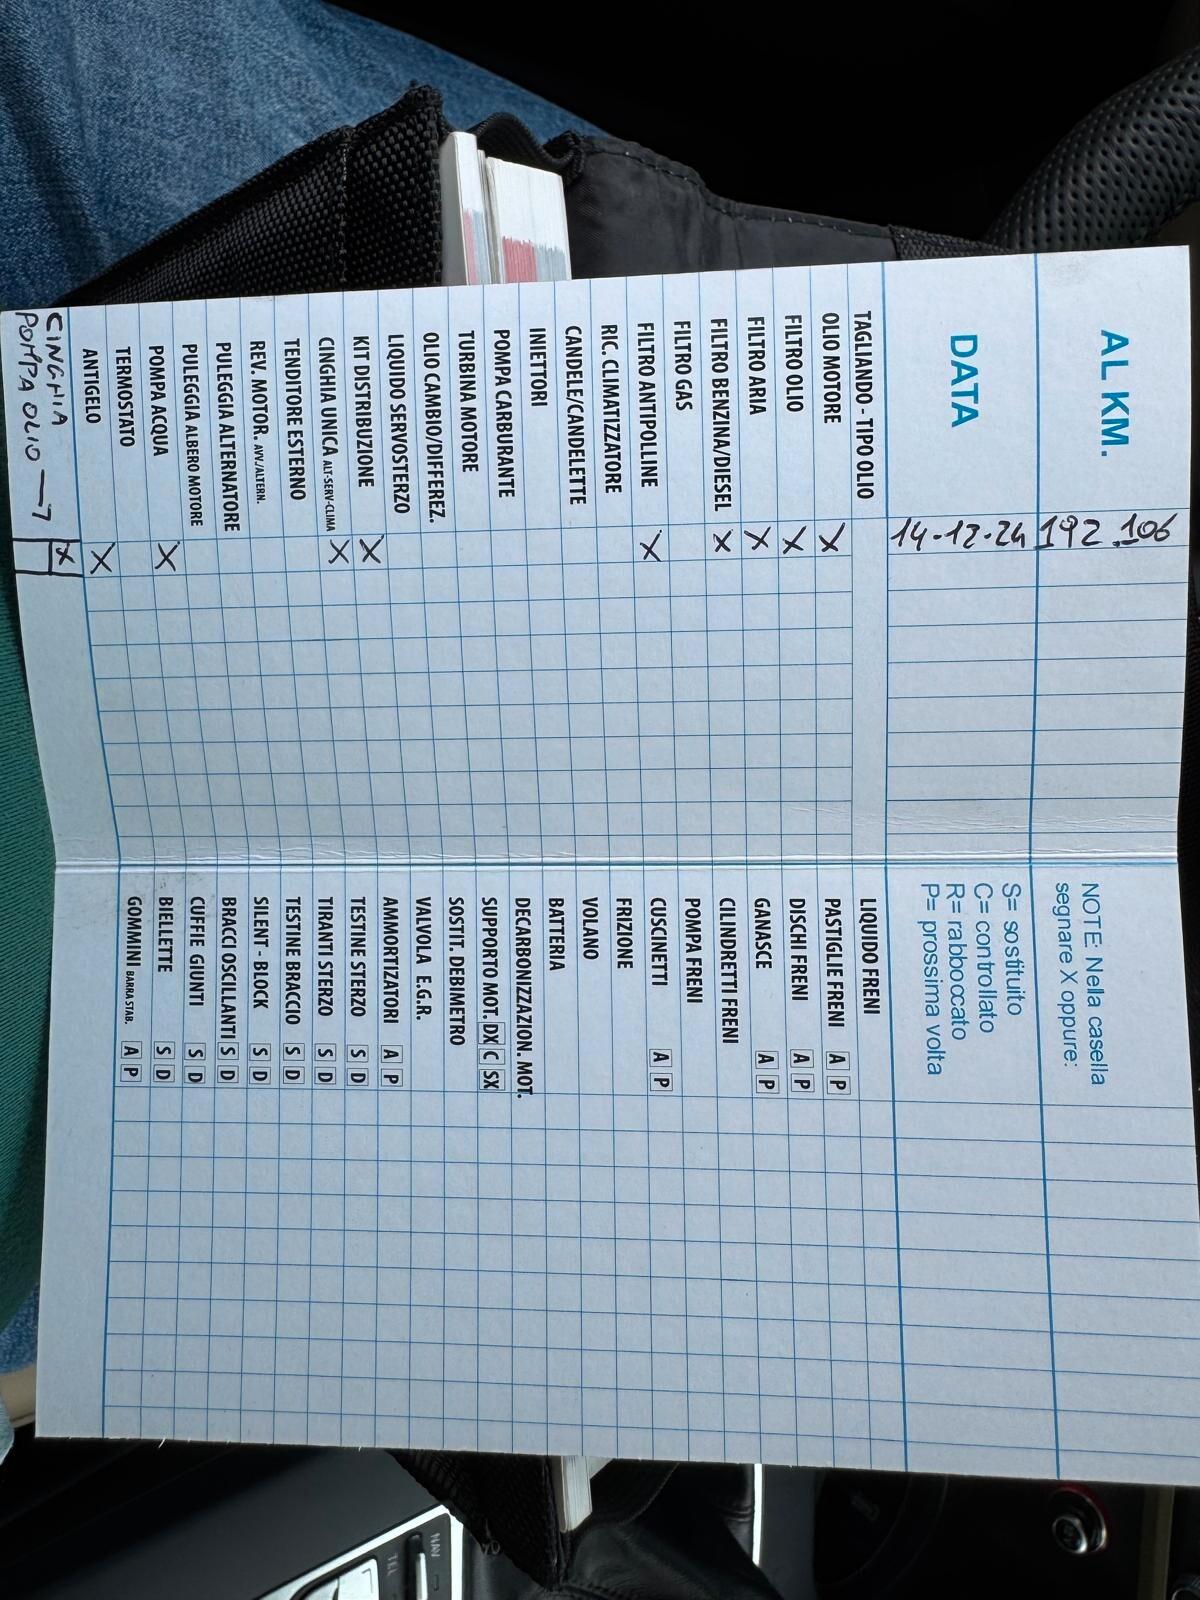 AL KM. 192.106
DATA 14-12-24
TAGLIANDO - TIPO OLIO
OLIO MOTORE X
FILTRO OLIO X
FILTRO ARIA X
FILTRO BENZINA/DIESEL X
FILTRO GAS
FILTRO ANTIPOLLINE X
RIC. CLIMATIZZATORE
CANDELE/CANDELETTE
INIETTORI
POMPA CARBURANTE
TURBINA MOTORE
OLIO CAMBIO/DIFFEREZ.
LIQUIDO SERVOSTERZO
KIT DISTRIBUZIONE X
CINGHIA UNICA ALT-SERV-CLIMA X
TENDITORE ESTERNO
REV. MOTOR. AVV./ALTERN.
PULEGGIA ALTERNATORE
PULEGGIA ALBERO MOTORE
POMPA ACQUA X
TERMOSTATO
ANTIGELO X
CINGHIA X
POMPA OLIO →
NOTE Nella casella
segnare X oppure:
S= sostituito
C= controllato
R= rabboccato
P= prossima volta
LIQUIDO FRENI
PASTIGLIE FRENI A P
DISCHI FRENI A P
GANASCE A P
CILINDRETTI FRENI
POMPA FRENI
CUSCINETTI A P
FRIZIONE
VOLANO
BATTERIA
DECARBONIZZAZION. MOT.
SUPPORTO MOT. DX C SX
SOSTIT. DEBIMETRO
VALVOLA E.G.R.
AMMORTIZATORI A P
TESTINE STERZO S D
TIRANTI STERZO S D
TESTINE BRACCIO S D
SILENT - BLOCK S D
BRACCI OSCILLANTI S D
CUFFIE GIUNTI S D
BIELLETTE S D
GOMMINI BARRA STAB. A P
NAV
TEL